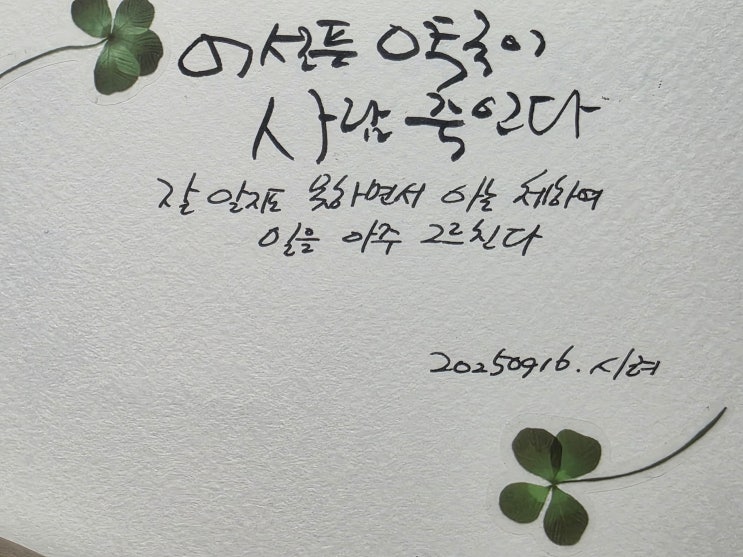 어설픈 약국이
사람 죽인다
잘 알지도 못하면서 아는 체하여
일을 아주 그르친다
20250916. 시려